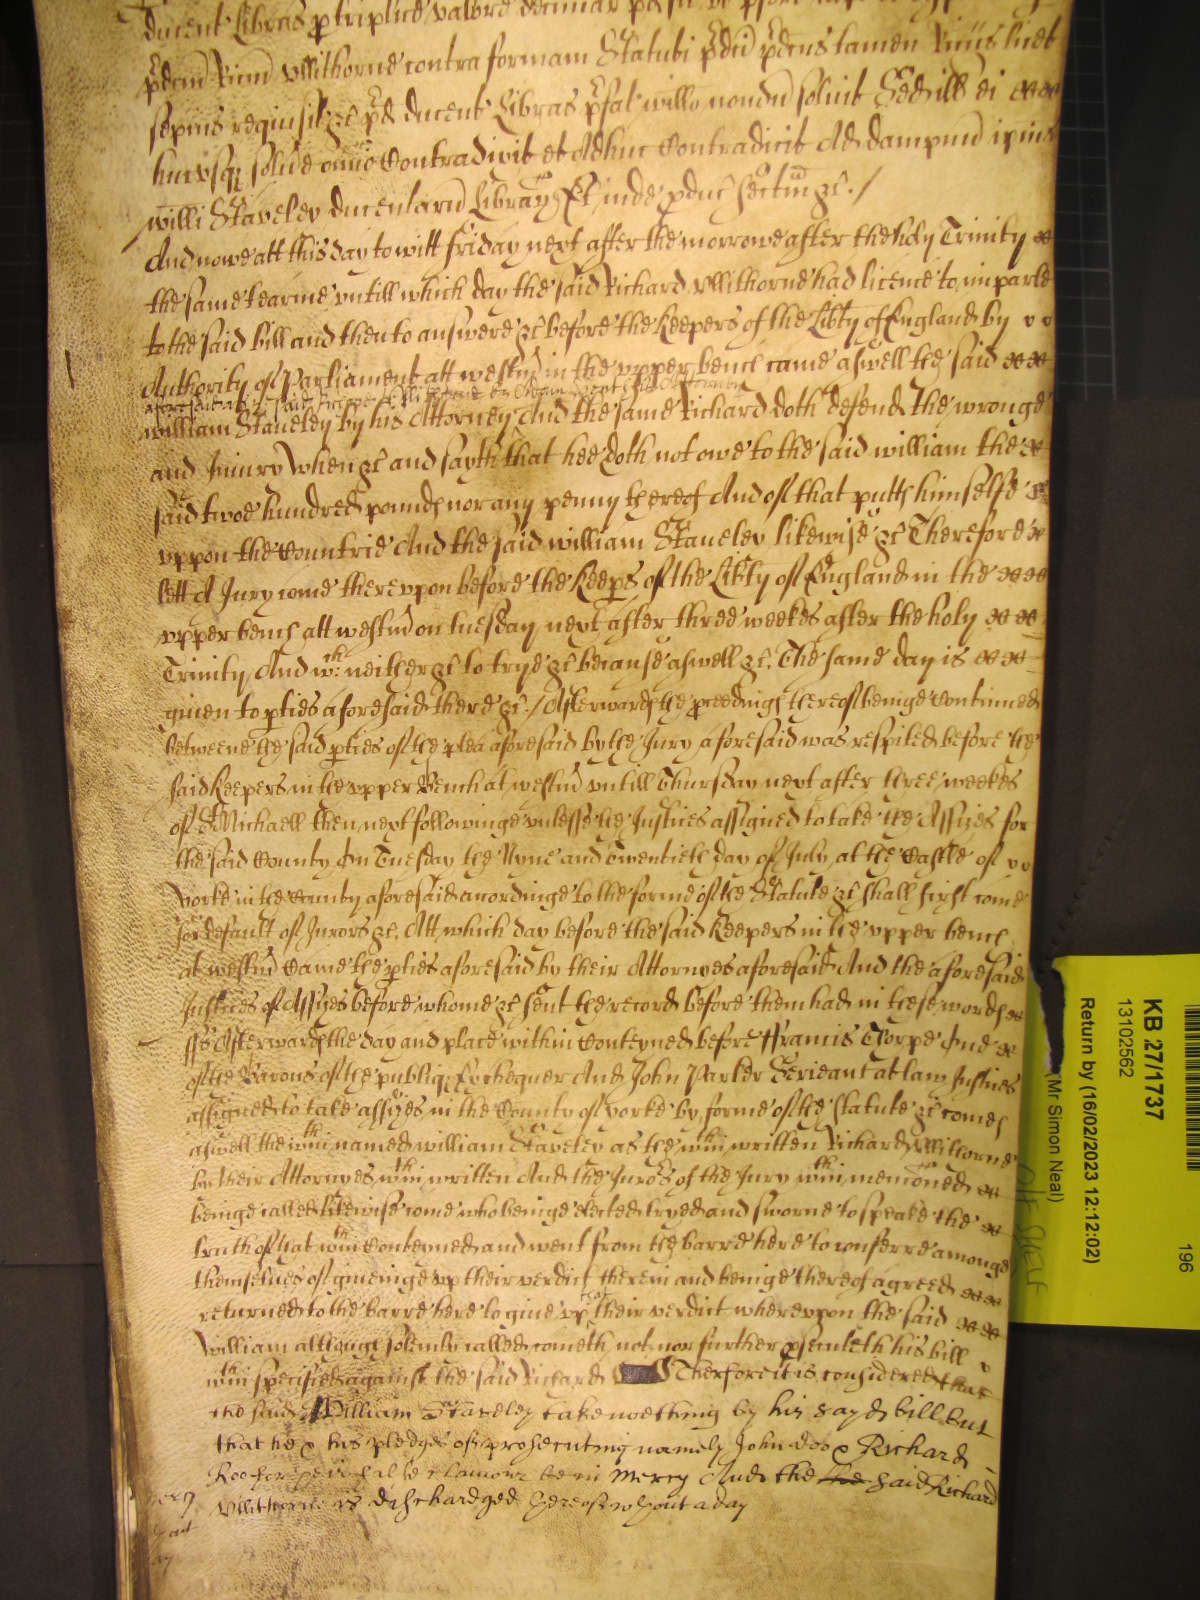 ducent libras p triplice valore
pdcm Ricm Ullithorne contra formam Statuti pdci pdcus tamen Ricus licet
sepius requisit &c pd ducent libras pfat willo nondu solvit Sed ill ei
hucusq solve omio Contradixit et Adhuc Contradicit Ad dampnu ipius
willi Staveley ducentaru librar Et inde pduc sectam &c /
And nowe att this day to witt friday next after the morrowe after the holy Trinity
the same tearme untill which day the said Richard Ullithorne had licence to imparle
to the said bill and then to answere &c before the Keepers of the Libty of England by
Authority of Parliament att westm in the upper bench came aswell the said
aforesaid as the said Richard Ullithorne by Attorney
william Staveley by his Attorney And the same Richard doth defend the wronge
and Iniury when &c and sayth that hee doth not owe to the said william the
said twoe hundred pounds nor any penny thereof And of that putts himselfe
uppon the Countrie And the said william Staveley likewise &c Therefore
lett A Jury come thereupon before the Keeps of the Libty of England in the
upper bench att westm on tuesday next after three weekes after the holy
Trinity And wch neither &c to trye &c because aswell &c. The same day is
given to pties aforesaid there &c. / Afterwards the pceedings thereof beinge Continued
betweene the said pties of the plea aforesaid by the Jury aforesaid was respited before the
said Keepers in the upper Bench at westm untill Thursday next after three weekes
of St Michaell then next followinge unlesse the Justices assigned to take the Assizes for
the said County On Tuesday the Nyne and Twentieth day of July at the Castle of
Yorke in the County aforesaid accordinge to the forme of the Statute &c shall first come
for default of Jurors &c. Att which day before the said Keepers in the upper bench
at westm Came the pties aforesaid by their Attornyes aforesaid And the aforesaid
Justices of Assizes before whome &c sent the record before them had in these words
ss Afterwards the day and place within Conteyned before Ffrancis Thorpe One
of the Barons of the publiq Exchequer And John Parker Serieant at law Justices
assigned to take assizes in the County of yorke by forme of the Statute &c comes
aswell the wthin named william Staveley as the wthin written Richard Ullithorne
by their Attornyes wthin written And the Jurors of the Jury wthin mencioned
beinge called likewise come who beinge elected tryed and sworne to speake the
truth of that wthin Conteyned and went from the barre here to conferre amonge
themselves of giveinge up their verdict therein and beinge thereof agreed
returned to the barre here to give up their verdict whereupon the said
William although solemly called cometh not nor further psecuteth his bill
wthin specified against the said Richard Therfore it is considered that
the said William Staveley take noething by his sayd bill but
that he & his pledges of prosecuting namely John doo & Richard
Roo for their false clamour be in Mercy And the the said Richard
Ullithorne is dischardged hereof wthout a day
mercy
KB 27/1737
13102562
Return by (16/02/2023 12:12:02)
(Mr Simon Neal)
196
O/S SHELF